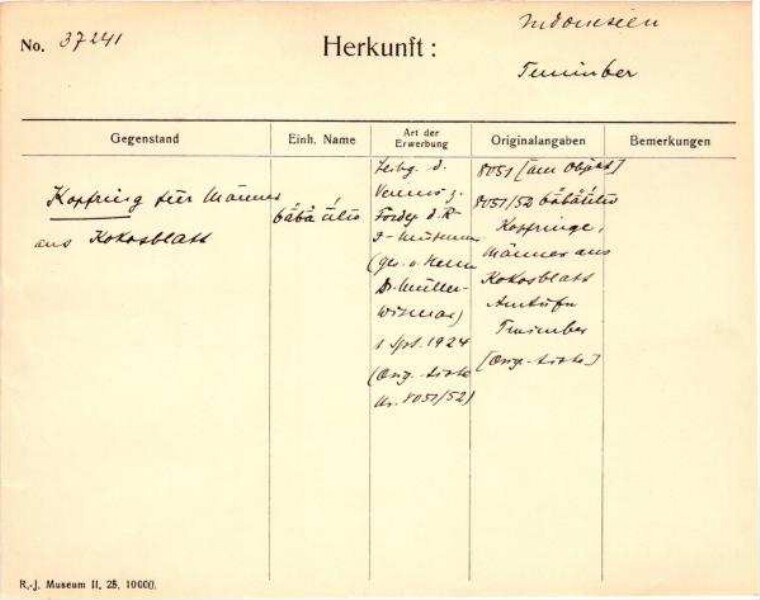 No. 37241
Herkunft:
Indonesien
Timimber
Gegenstand
Einh. Name
Art der Erwerbung
Originalangaben
Bemerkungen
Kopfring für Männer
aus Kokosblatt
Leihg. d.
Vereins z.
Förder d. R-
J-Museums
(ges. v. Herrn
Dr. Müller-
Wismar)
1 Spt. 1924
(Orig.-Liste
Nr. 8051/52)
8051 [am Objekt]
8051/52
Kopfringe,
Männer aus
Kokosblatt
Amtufu
Timimber
[Orig.-Liste]
R.-J. Museum II, 25, 10000.